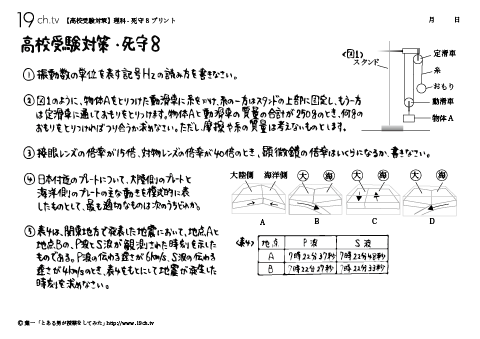 19 ch.tv 【高校受験対策】理科-死守8プリント 月 日
高校受験対策・死守8
① 振動数の単位を表す記号Hzの読み方を書きなさい。
② 図1のように、物体Aをとりつけた動滑車に糸をかけ、糸の一方はスタンドの上部に固定し、もう一方
は定滑車に通しておもりをとりつけます。物体Aと動滑車の質量の合計が250gのとき、何gの
おもりをとりつければつり合うか求めなさい。ただし、摩擦や糸の質量は考えないものとします。
<図1>
スタンド
定滑車
糸
おもり
動滑車
物体A
③ 接眼レンズの倍率が15倍、対物レンズの倍率が40倍のとき、顕微鏡の倍率はいくらになるか、書きなさい。
④ 日本付近のプレートについて、大陸側のプレートと
海洋側のプレートの主な動きを模式的に表
したものとして、最も適切なものは次のうちどれか。
大陸側 海洋側 大 海 大 海 大 海
A B C D
⑤ 表4は、関東地方で発表した地震において、地点Aと
地点Bの、P波とS波が観測された時刻を示した
ものである。P波の伝わる速さが6km/s、S波の伝わる
速さが4km/sのとき、表4をもとにして地震が発生した
時刻を求めなさい。
<表4>
地点 P波 S波
A 7時22分37秒 7時22分48秒
B 7時22分27秒 7時22分33秒
© 葉一「とある男が授業をしてみた」http://www.19ch.tv